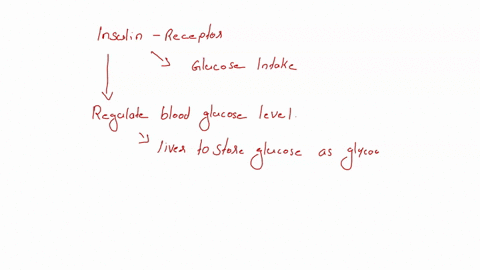 Insulin - Receptor
Glucose Intake
Regulate blood glucose level.
liver to store glucose as glycog